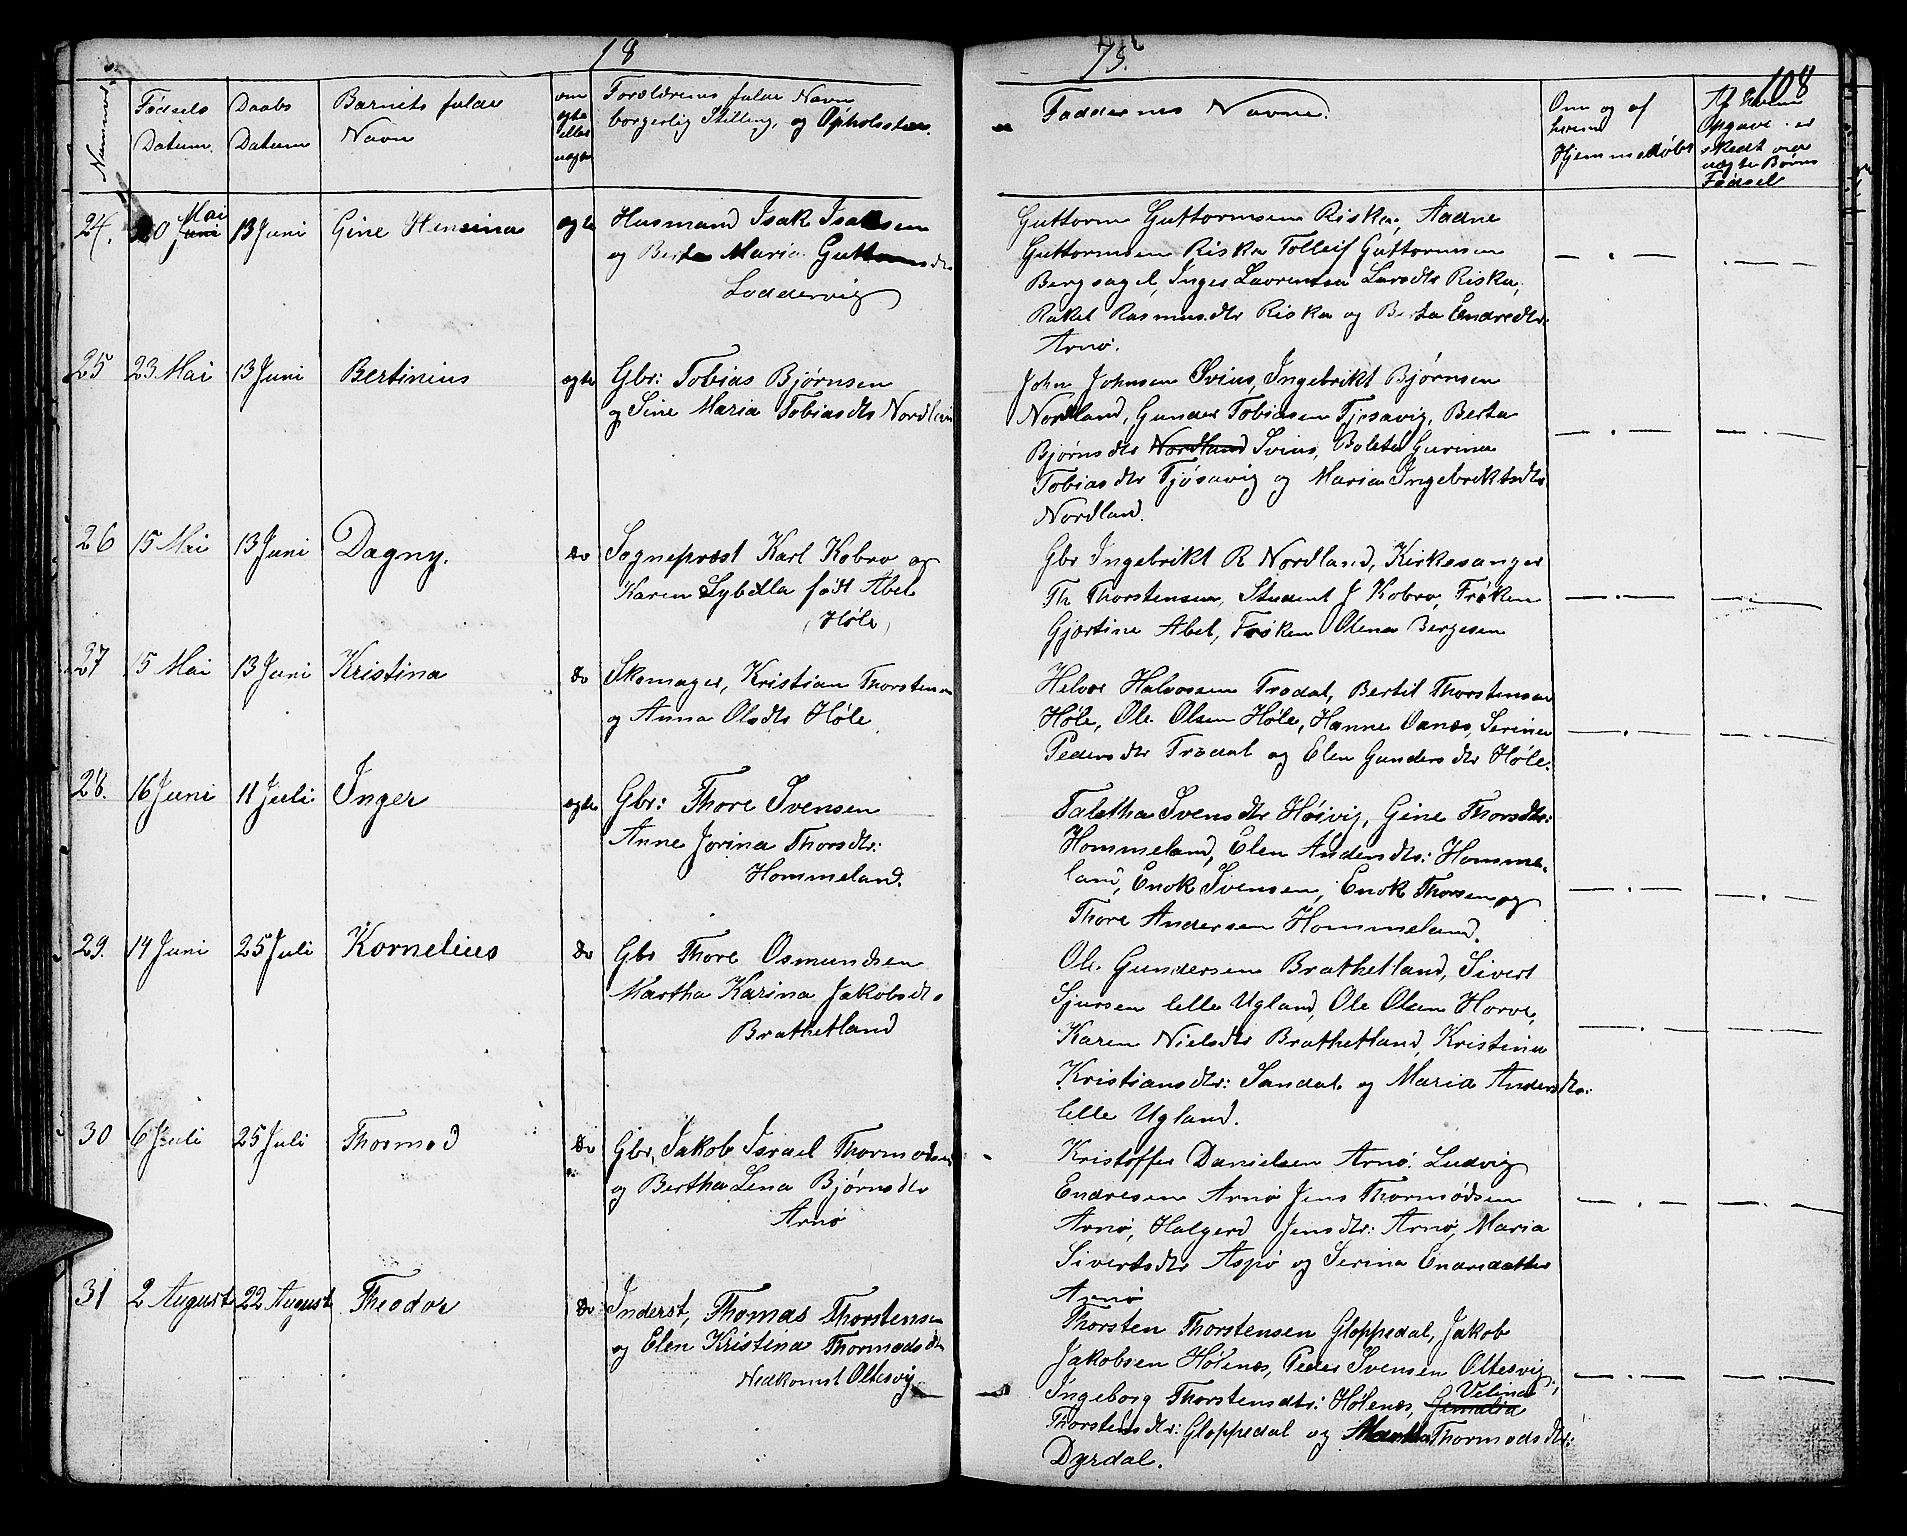 18
75.
108
Nummer
Fødsels
Datum
Daabs
Datum
Barnets fulde
Navn
om
ægte
eller
uægte
Forældrenes fulde Navn
borgerlig Stilling, og Opholssted.
Faddernes Navne.
Om og af
hvem
Hjemmedøbt
Af hvem
Opgave er
skedt over
uægte Børns
Fødsel
24.
20 Juni
Mai
13 Juni
Gine Hensina
ægte
Husmand Isak Isaksen
og Berta Maria Guttormsdtr
Loddervig
Guttorm Guttormsen Riska, Aadne
Guttormsen Riska Tolleif Guttormsen
Bergsagel, Inger Laurentsa Larsdtr Riska,
Rakel Rasmusdtr Riska og Berta Endredtr
Arnø.
25
23 Mai
13 Juni
Bertinius
ægte
Gbr: Tobias Bjørnsen
og Sine Maria Tobiasdtr Nordland
John Johnsen Svius, Ingebrikt Bjørnsen
Nordland, Gunder Tobiasen Tjøsavig, Berta
Bjørnsdtr Nordland Svius, Bolette Gurina
Tobiasdtr Tjøsavig og Maria Ingebriktsdtr
Nordland.
26
15 Mai
13 Juni
Dagny.
do
Sogneprest Karl Kobro og
Karen Sybilla født Abel
(Høle)
Gbr Ingebrikt R Nordland, Kirkesanger
Th Thorstensen, Student J Kobro, Frøken
Gjertine Abel, Frøken Olena Bergesen
27
15 Mai
13 Juni
Kristina
do
Skomager, Kristian Thorstensen
og Anna Olsdtr Høle
Helvor Halvorsen Trodal, Bertil Thorstensen
Høle, Ole Olsen Høle, Hanne Oanæs, Serina
Pedersdtr Trodal og Elen Gundersdtr Høle.
28.
16 Juni
11 Juli.
Inger
ægte
Gbr: Thore Svensen
Anne Jorina Thorsdtr:
Hommeland.
Taletha Svensdtr Høivig, Gine Thorsdtr:
Hommeland, Elen Andersdtr: Homme-
land, Enok Svensen, Enok Thorsen og
Thore Andersen Hommeland.
29.
14 Juni
25 Juli
Kornelius
do
Gbr Thore Osmundsen
Martha Karina Jakobsdtr
Brathetland
Ole Gundersen Brathetland, Sivert
Sjursen lelle Ugland, Ole Olsen Horve,
Karen Nielsdtr Brathetland, Kristina
Kristiansdtr: Sandal og Maria Andersdtr:
lelle Ugland.
30
6 Juli
25 Juli
Thormod
do
Gbr, Jakob Israel Thormodsen
og Bertha Lena Bjørnsdtr
Arnø
Kristoffer Danielsen Arnø. Ludvig
Endresen Arnø Jens Thormodsen
Arnø, Halgerd Jensdtr: Arnø, Maria
Sivertsdtr Aspø og Serina Endredatter
Arnø
31
2 August
22 August
Theodor
do
Inderst, Thomas Thorstensen
og Elen Kristina Thormodsdtr
Nedkomst Oltesvig
Thorsten Thorstensen Gloppedal, Jakob
Jakobsen Hølenæs, Peder Svensen Oltesvig,
Ingeborg Thorstensdtr: Hølenæs, Velina
Thorstensdtr: Gloppedal og Martha Thormodsdtr:
Dyrdal.